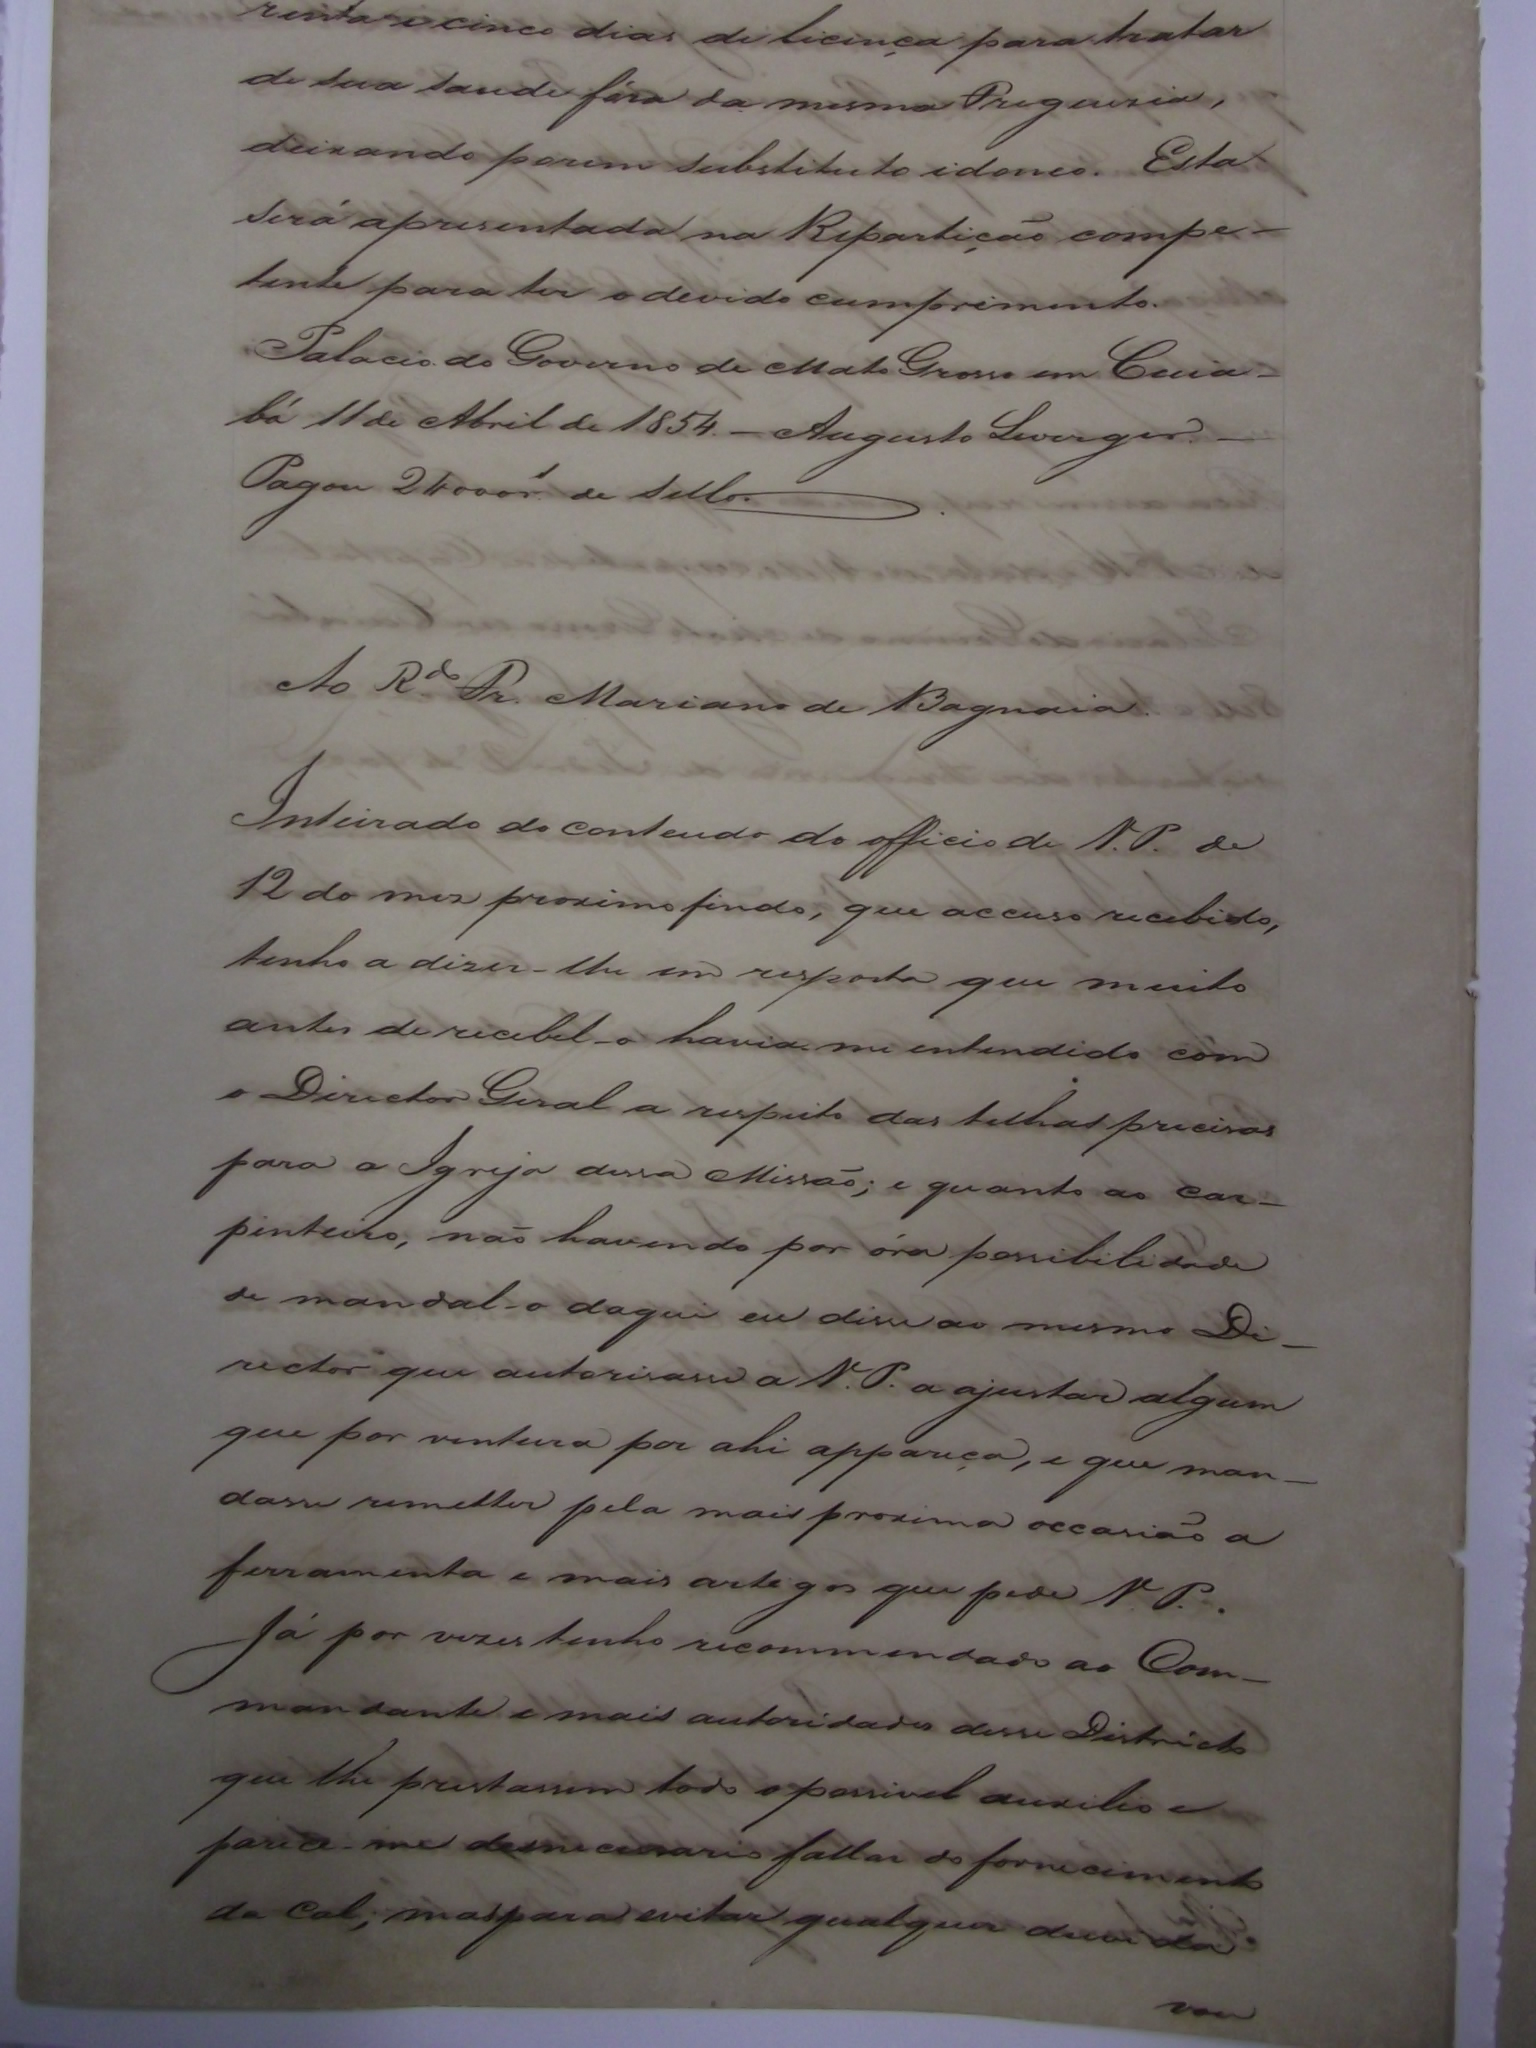 renta e cinco dias de licença para tratar
de sua saude fóra da mesma Freguezia,
deixando porem substituto idoneo. Esta
será apresentada na Repartição compe-
tente para ter o devido cumprimento.
Palacio do Governo de Mato Grosso em Cuia-
bá 11 de Abril de 1854. - Augusto Leverger. -
Pagou 24000rs de sello.
Ao R.do Fr. Mariano de Bagnaia.
Inteirado do conteudo do officio de V. P. de
12 do mez proximo findo, que accuso recebido,
tenho a dizer-lhe em resposta que muito
antes de recebel-o havia me entendido com
o Director Geral a respeito das telhas precisas
para a Igreja dessa Missão; e quanto ao car-
pinteiro, não havendo por óra possibilidade
de mandal-o daqui eu disse ao mesmo Di-
rector que autorisasse a V. P. a ajustar algum
que por ventura por ahi appareça, e que man-
dasse remetter pela mais proxima occasião a
ferramenta e mais artigos que pede V. P..
Já por vezes tenho recommendado ao Com-
mandante e mais autoridades desse Districto
que lhe prestassem todo o possivel auxilio e
parece-me desnecessario fallar do fornecimento
da cal; mas para evitar qualquer duvida
vou